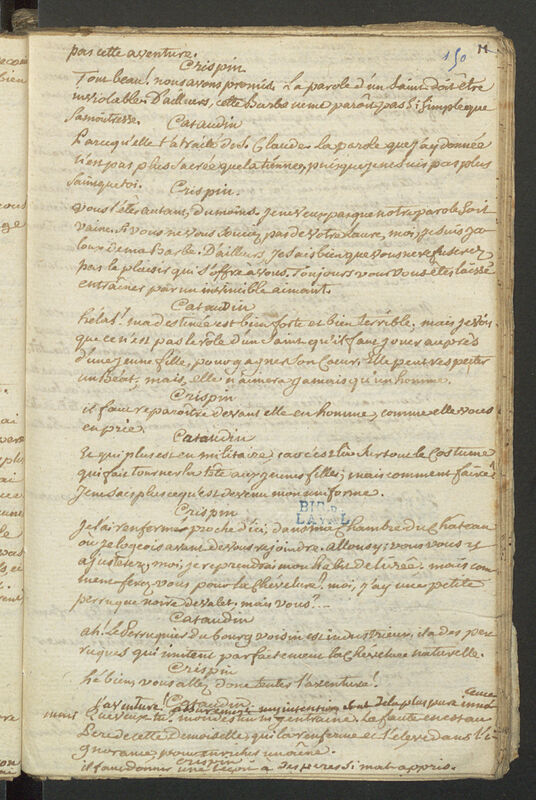 11
150
pas cette aventure.
Crispin
Tout beau! nous avons promis. La parole d'un Saint doit être
inviolable. D'ailleurs, cette Barbe ne me parôit pas si simple que
sa maitresse.
Cataudin
Parcequ'elle t'a traité de St Claude. La parole que j'ay donnée
n'est pas plus sacrée que la tienne, puisque je ne suis pas plus
saint que toi.
Crispin.
vous l'êtes autant, du moins. Je ne veux pas que notre parole soit
vaine. Si vous ne vous souciez pas de votre Laure, moi, je suis ja-
loux de ma Barbe. D'ailleurs, je sais bien que vous ne refuserez
pas le plaisir qui s'offre a vous. Toujours vous vous êtes laissé
entrâiner par un invincible aimant.
Cataudin
hélas! ma destinée est bien forte et bien terrible. mais je vois
que ce n'est pas le rôle d'un Saint qu'il faut jouer auprès
d'une jeune fille, pour gagner son Coeur. Elle peut respecter
un Béat, mais, elle n'aimera jamais qu'un homme.
Crispin
il faut reparoître devant elle en homme, comme elle vous
en prie.
Cataudin
Et qui plus est en militaire, car c'est là surtout le Costume
qui fait tourner la tête aux jeunes filles; mais comment faire?
Je ne sais plus ce qu'est devenu mon uniforme.
Crispin
Je l'ai renfermé proche d'ici, dans ma Chambre du Chateau
où je logeois avant de vous rejoindre. allons y; vous vous y
ajusterez; moi, je reprendrai mon habit de livrée. mais com-
ment ferez vous pour la Chevelure? moi, j'ay une petite
perruque noire de valet, mais vous?...
BIB. DE
LAVAL
Cataudin
ah! Le Perruquier du bourg voisin est industrieux, il a des per-
ruques qui imitent parfaitement la Chevelure naturelle.
Crispin
hé bien, vous allez donc tenter l'aventure!
Cataudin
Que veux tu? mon destin m'y entraine. La faute en est au
Pere de cette demoiselle, qui la renferme et l'eleve dans l'i-
gnorance, pour enrichir un aîné.
Crispin
il faut donner une leçon à des peres si mal appris.